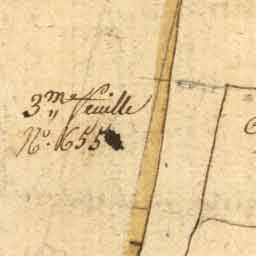 3.me feuille
No. 655